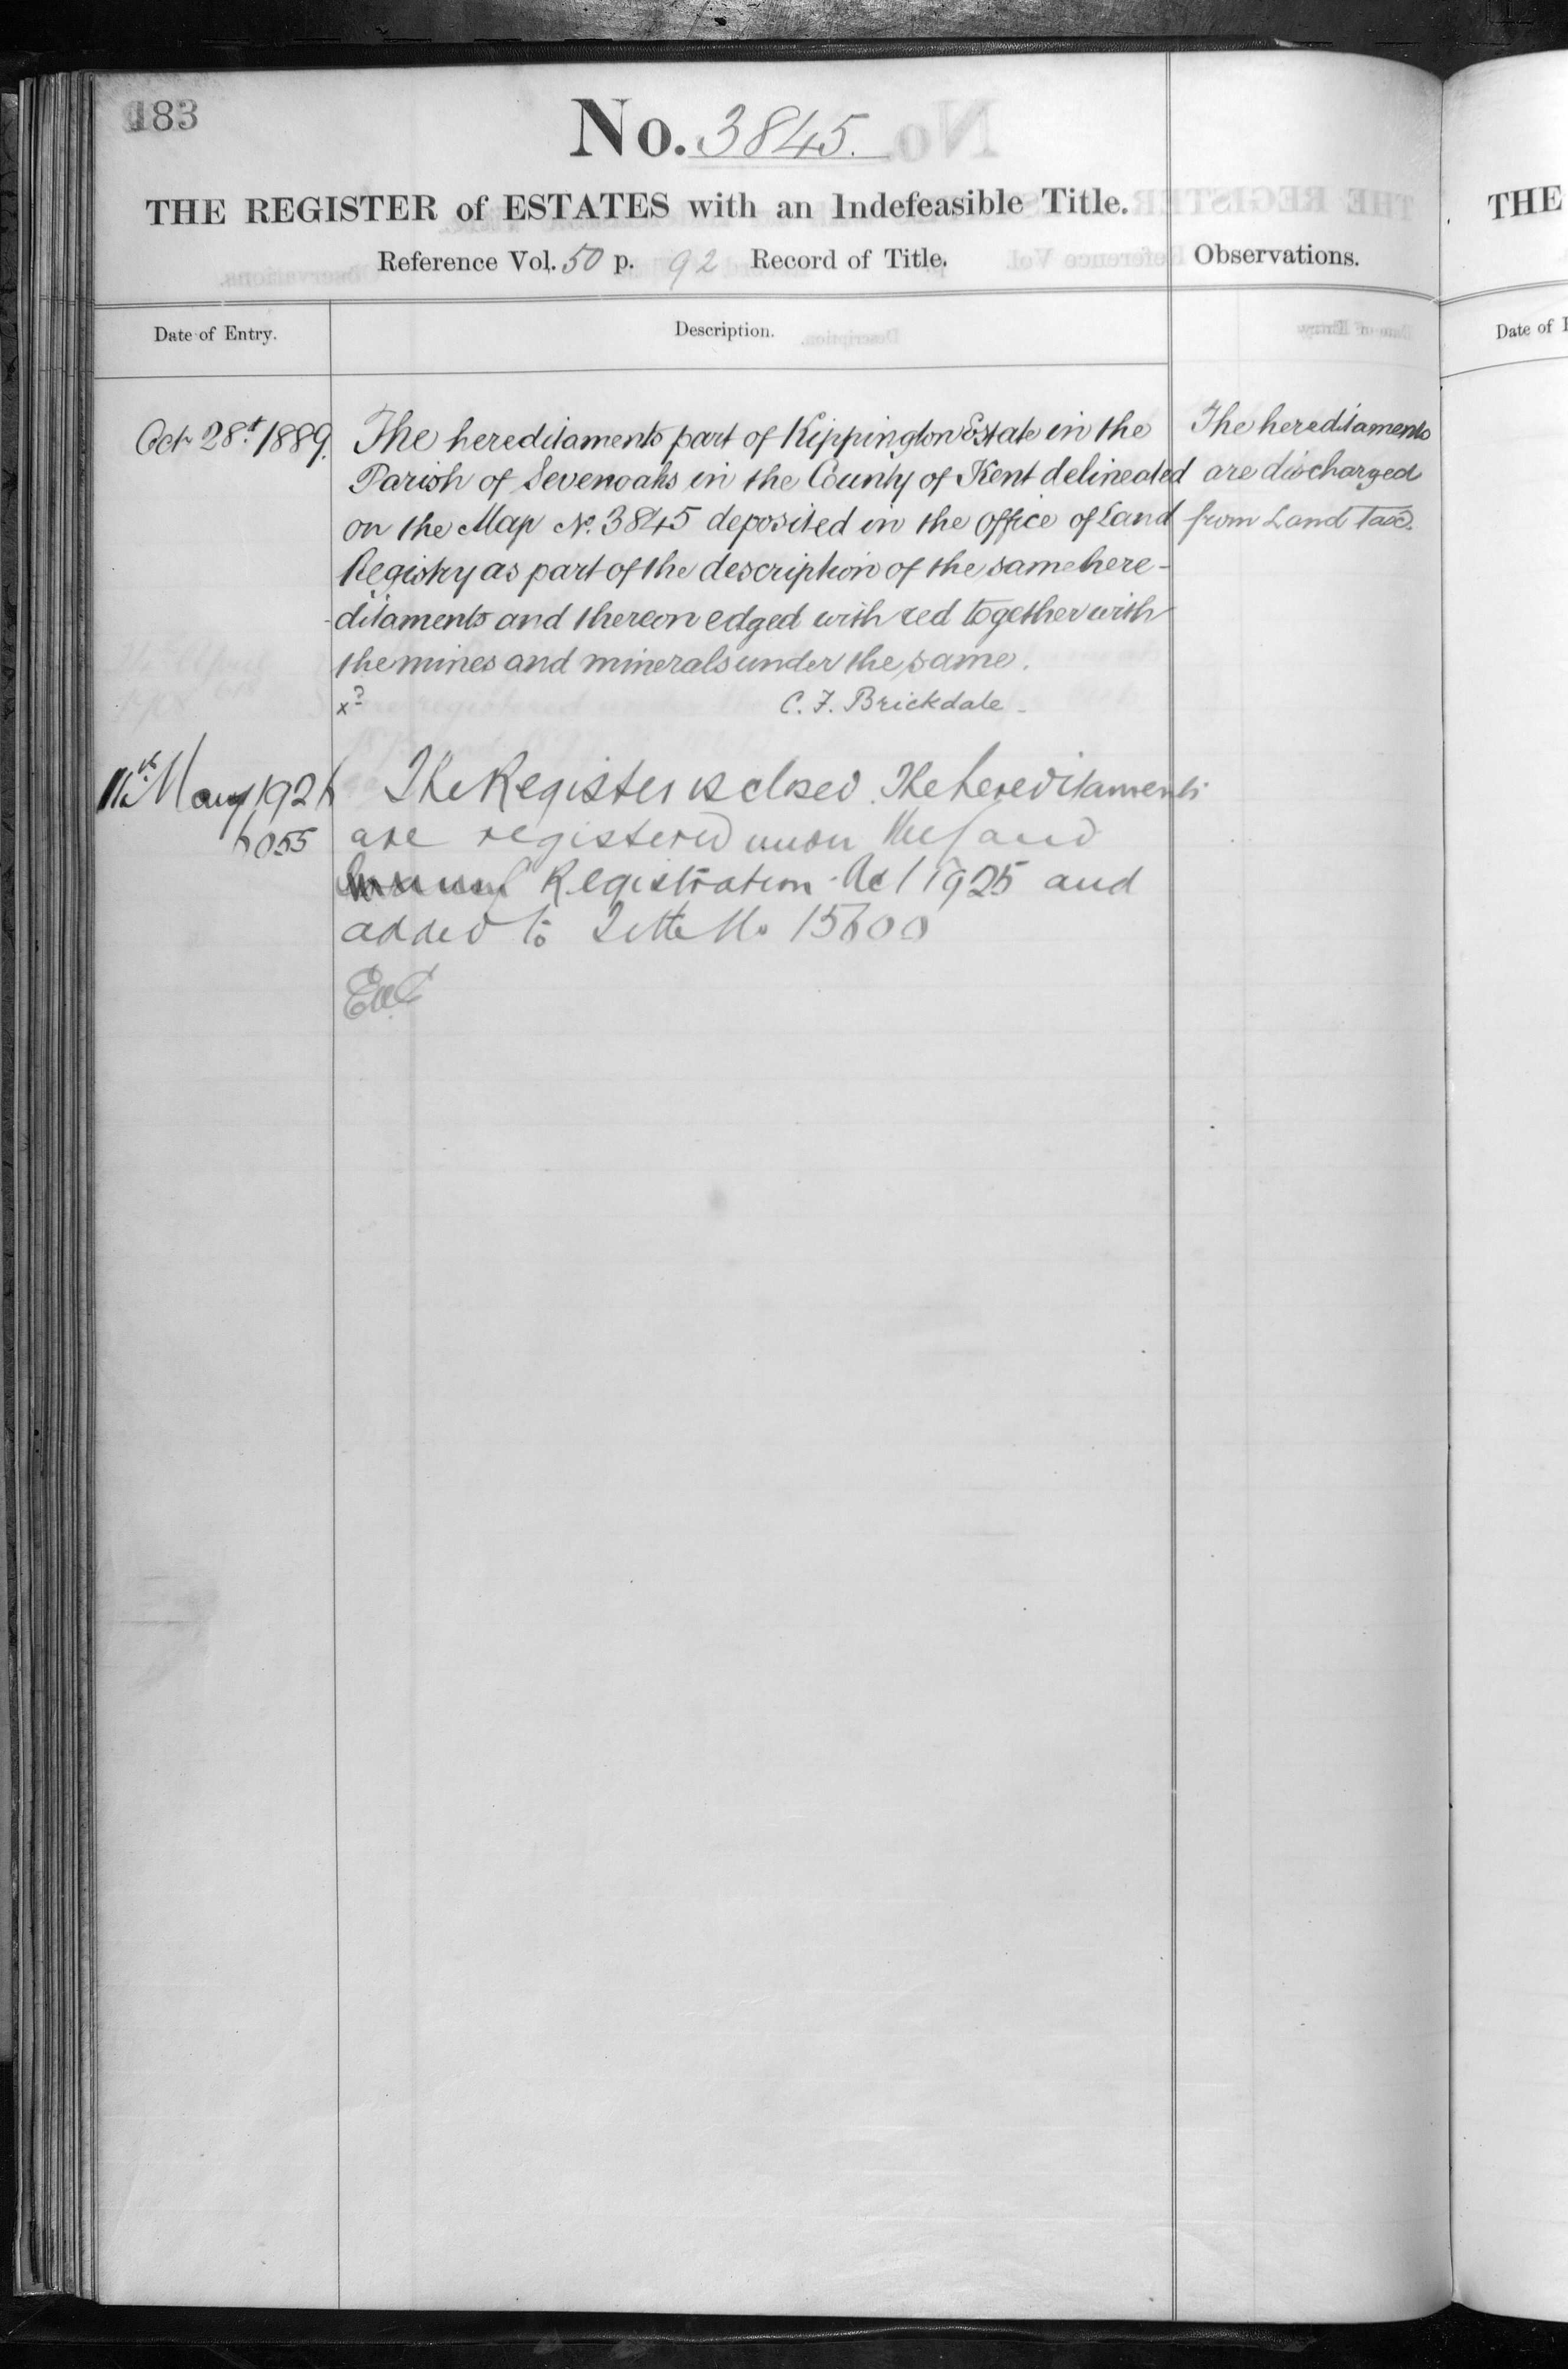 183
No. 3845.
THE REGISTER of ESTATES with an Indefeasible Title.
Reference Vol. 50 p. 92 Record of Title.
Observations.
Date of Entry.
Description.
Oct 28.t 1889.
The hereditaments part of Kippington Estate in the
Parish of Sevenoaks in the County of Kent delineated
on the Map No. 3845 deposited in the office of Land
Registry as part of the description of the same here-
-ditaments and thereon edged with red together with
the mines and minerals under the same.
C. F. Brickdale
The hereditaments
are discharged
from Land Tax.
11th May 1926
6055
The Register is closed. The hereditaments
are registered under the Land
Registration Act 1925 and
added to Title No 15600
THE
Date of